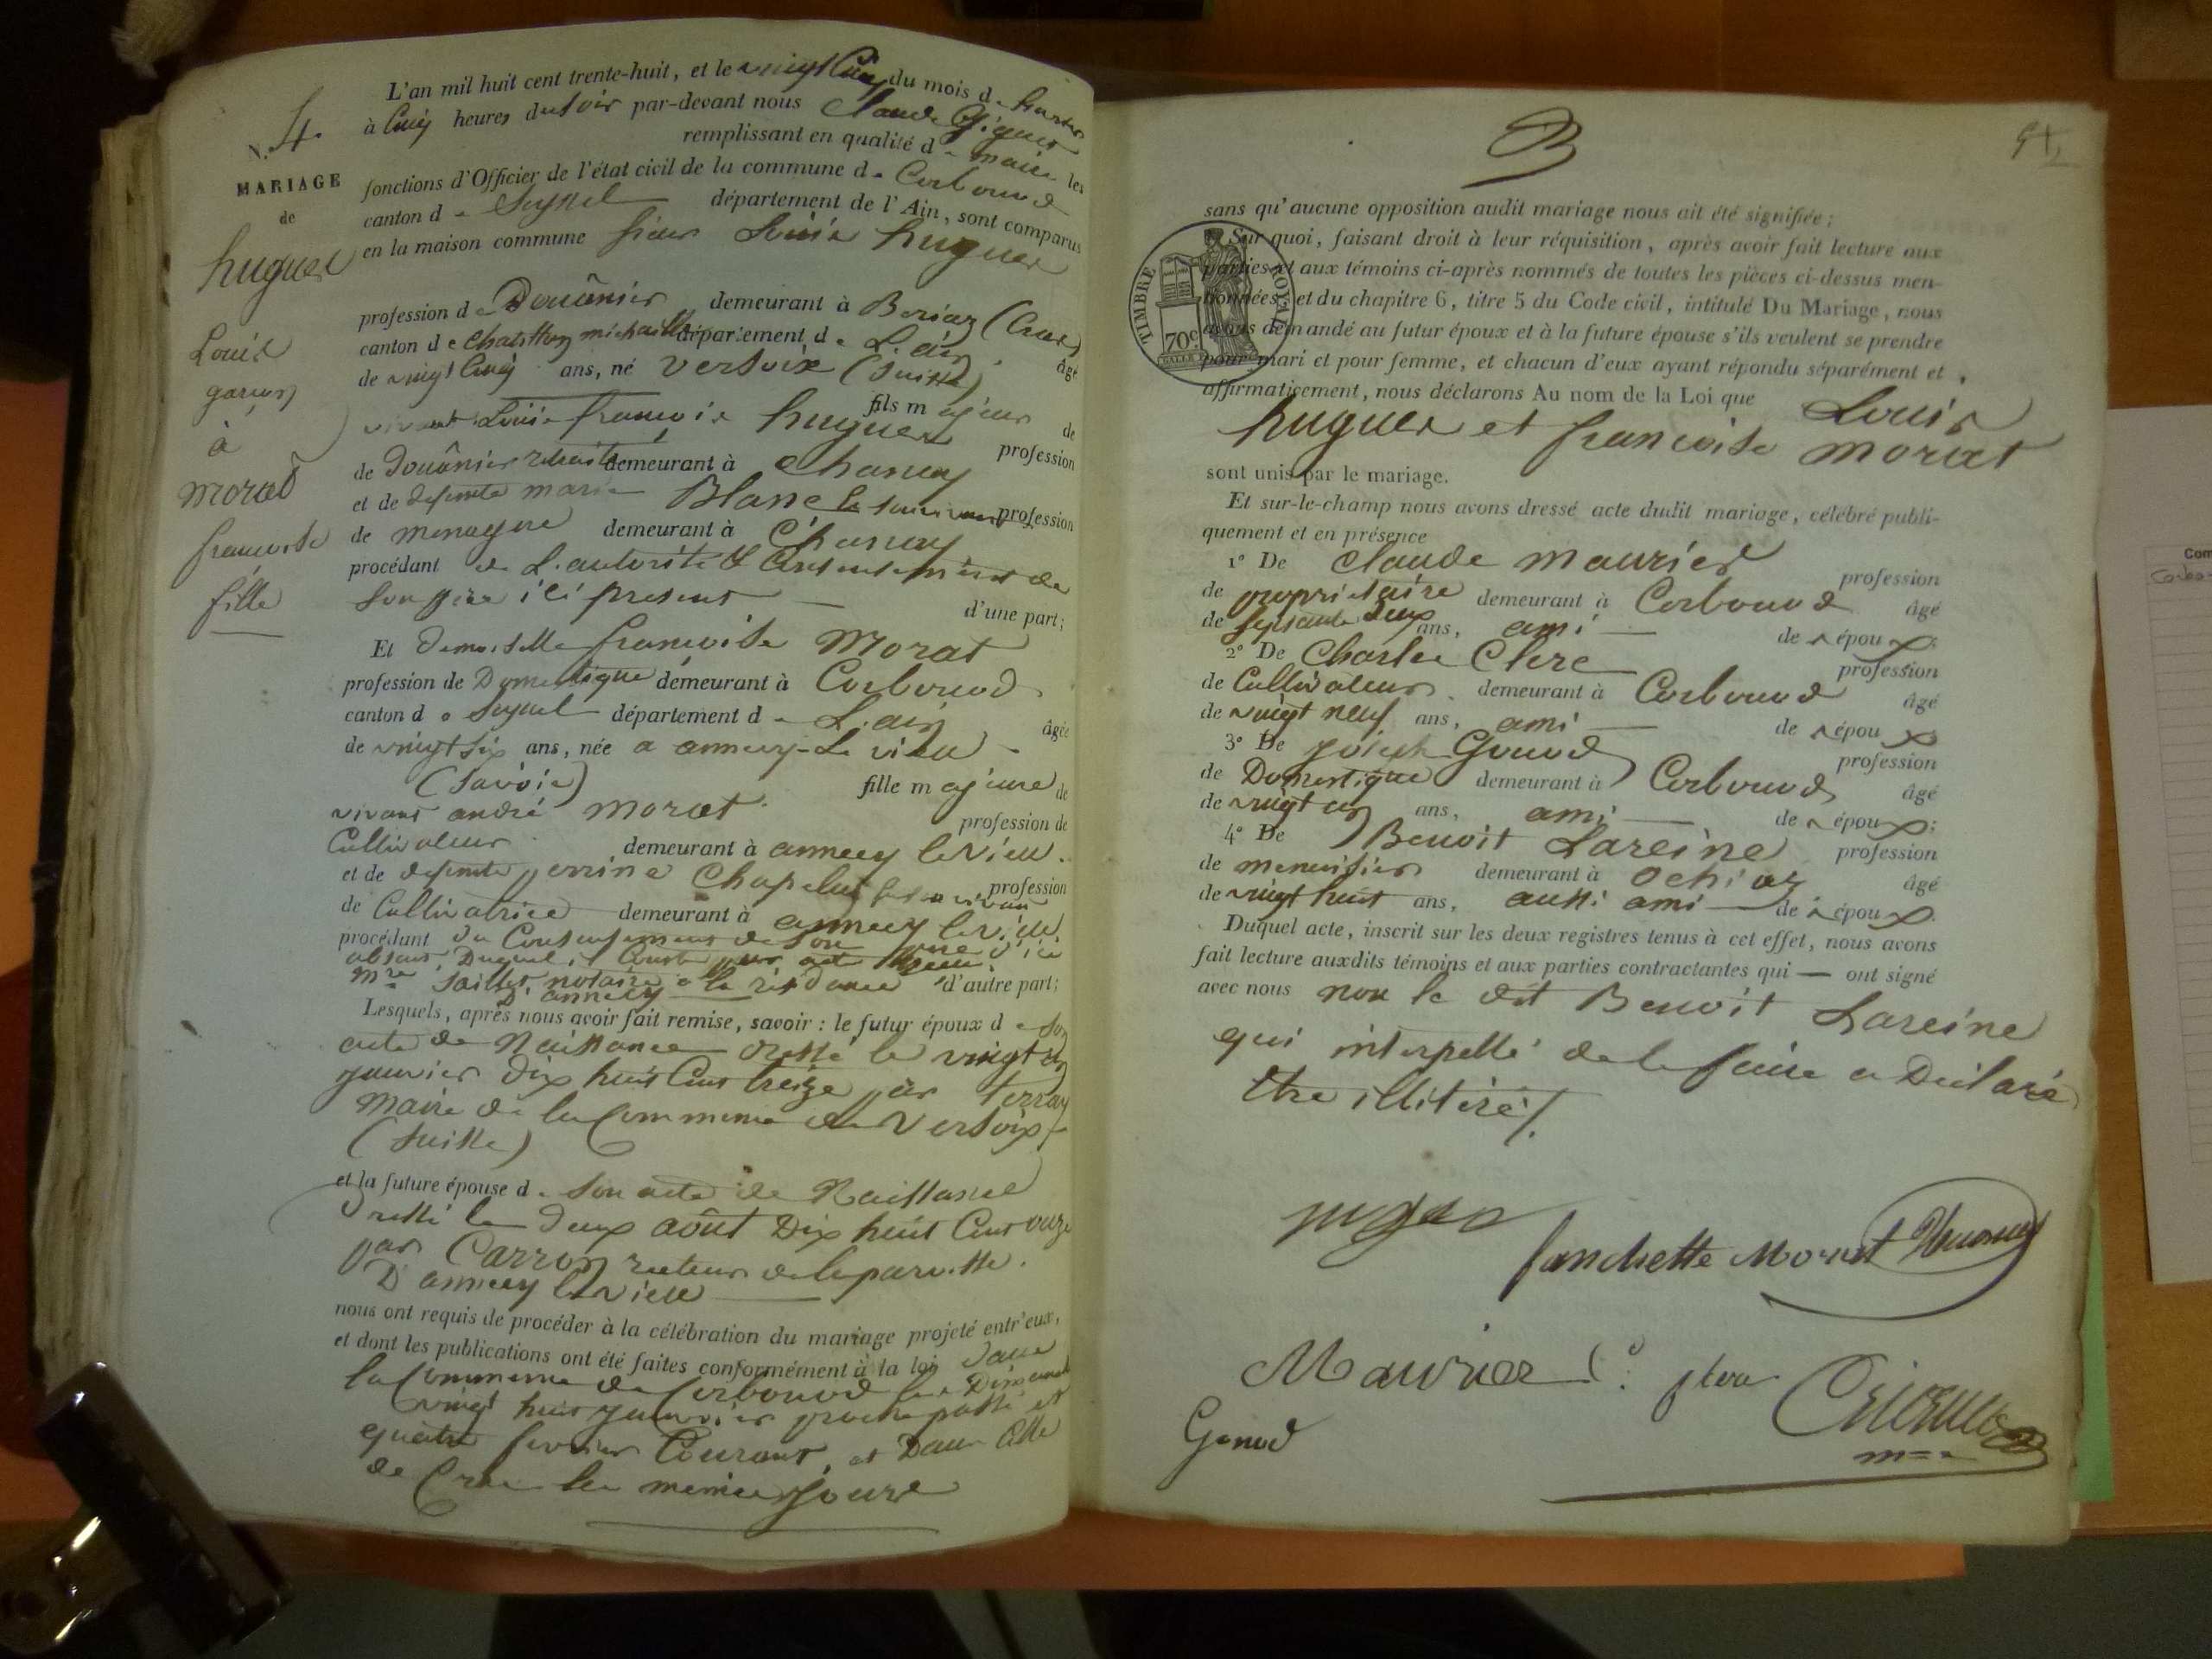 L'an mil huit cent trente-huit, et le vingt cinq du mois d
à cinq heures du soir par-devant nous Claude
remplissant en qualité de maire les
N. 4.
MARIAGE
de
huguet
Louis
garçon
à
morat
francoise
fille
fonctions d'Officier de l'état civil de la commune de Corbonod
canton de Seyssel département de l'Ain, sont comparus
en la maison commune sieur Louis huguet
profession de Douânier demeurant à Boriaz (Craz)
canton de chatillon michaille département de L'ain âgé
de vingt Cinq ans, né versoix (Suisse)
fils majeur de
vivant Louis francois huguet profession
de Douânier retraité demeurant à Chanay
et de defunte marie Blanc profession
de menagere demeurant à Chanay
procédant de L'autorité & Consentement de
Son père ici présent d'une part;
Et demoiselle francoise Morat
profession de Domestique demeurant à Corbonod
canton de Seyssel département de L'ain âgée
de vingt six ans, née a annecy-Le vieu
(Savoie) fille majeure de
vivant andré morat profession de
Cultivateur demeurant à annecy le vieu.
et de defunte perrine Chapelut profession
de Cultivatrice demeurant à annecy le vieu
procédant du Consentement de Son père d'ici
absent, Duquel il Conste par acte
Mre notaire à la résidence d'autre part;
D'annecy
Lesquels, après nous avoir fait remise, savoir: le futur époux de son
acte de Naissance dressé le vingt
janvier Dix huit Cent treize par terray
Maire de la Commune de Versoix
(Suisse)
et la future épouse de Son acte de Naissance
Dressé le deux août Dix huit Cent onze
par Carron recteur de la paroisse
D'annecy le vieu
nous ont requis de procéder à la célébration du mariage projeté entr'eux,
et dont les publications ont été faites conformément à la loi Dans
la Commune de Corbonod les Dimanches
vingt huit janvier proche passé et
quatre fevrier Courant, et Dans Celle
de Craz les mêmes jours
B
sans qu'aucune opposition audit mariage nous ait été signifiée;
Sur quoi, faisant droit à leur réquisition, après avoir fait lecture aux
parties et aux témoins ci-après nommés de toutes les pièces ci-dessus men-
tionnées, et du chapitre 6, titre 5 du Code civil, intitulé Du Mariage, nous
avons demandé au futur époux et à la future épouse s'ils veulent se prendre
pour mari et pour femme, et chacun d'eux ayant répondu séparément et
affirmativement, nous déclarons Au nom de la Loi que Louis
huguet et francoise morat
TIMBRE ROYAL
70c
sont unis par le mariage.
Et sur-le-champ nous avons dressé acte dudit mariage, célébré publi-
quement et en présence
1° De Claude Maurier profession
de propriétaire demeurant à Corbonod âgé
de Septante deux ans, ami de l'époux;
2° De Charles Clerc profession
de Cultivateur demeurant à Corbonod âgé
de vingt neuf ans, ami de l'époux
3° De joseph Gonod profession
de Domestique demeurant à Corbonod âgé
de vingt ans, ami de l'époux;
4° De Benoit Lareine profession
de menuisier demeurant à Ochiaz âgé
de vingt huit ans, aussi ami de l'époux.
Duquel acte, inscrit sur les deux registres tenus à cet effet, nous avons
fait lecture auxdits témoins et aux parties contractantes qui — ont signé
avec nous non le dit Benoit Lareine
qui interpellé de le faire a Déclaré
être illitéré /.
fanchette Morat
Maurier C.
Gonod